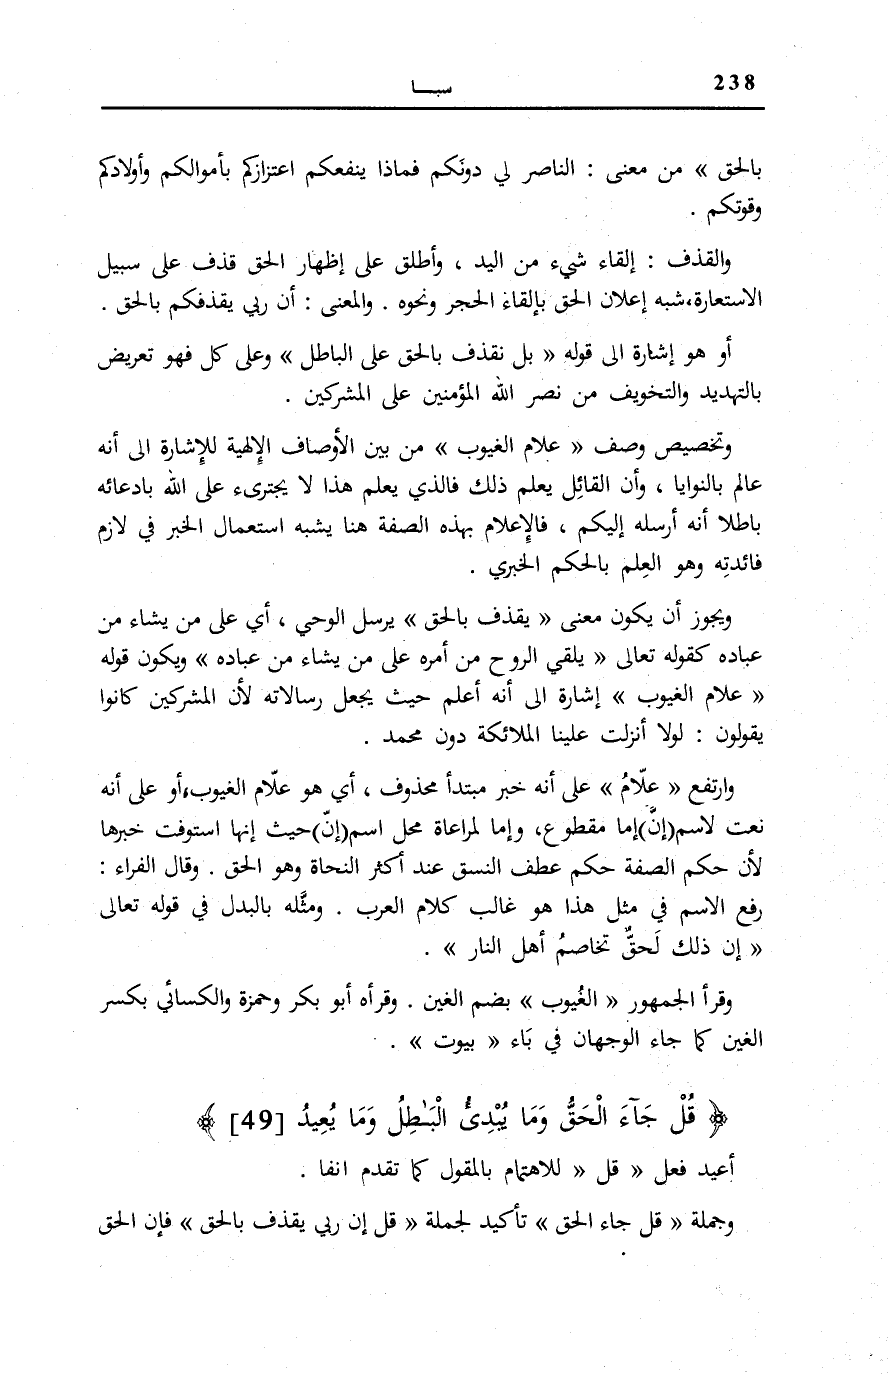 238
سبـــا
بالحق » من معنى : الناصر لي دونَكم فماذا ينفعكم اعتزازكم بأموالكم وأولادكم
وقوتكم .
والقذف : إلقاء شيء من اليد ، وأطلق على إظهار الحق قذف على سبيل
الاستعارة،شبه إعلان الحق بإلقاء الحجر ونحوه . والمعنى : أن ربي يقذفكم بالحق .
أو هو إشارة الى قوله « بل نقذف بالحق على الباطل » وعلى كل فهو تعريض
بالتهديد والتخويف من نصر الله المؤمنين على المشركين .
وتخصيص وصف « علام الغيوب » من بين الأوصاف الإلهية للإشارة الى أنه
عالم بالنوايا ، وأن القائِل يعلم ذلك فالذي يعلم هذا لا يجترىء على الله بادعائه
باطلا أنه أرسله إليكم ، فالإعلام بهذه الصفة هنا يشبه استعمال الخبر في لازم
فائدتِه وهو العِلم بالحكم الخبري .
ويجوز أن يكون معنى « يقذف بالحق » يرسل الوحي ، أي على من يشاء من
عباده كقوله تعالى « يلقي الروح من أمره على من يشاء من عباده » ويكون قوله
« علام الغيوب » إشارة الى أنه أعلم حيث يجعل رسالاته لأن المشركين كانوا
يقولون : لولا أنزلت علينا الملائكة دون محمد .
وارتفع « علّامُ » على أنه خبر مبتدأ محذوف ، أي هو علّام الغيوب،أو على أنه
نعت لاسم(إنَّ)إما مقطوع، وإما لمراعاة محل اسم(إنّ)حيث إنها استوفت خبرها
لأن حكم الصفة حكم عطف النسق عند أكثر النحاة وهو الحق . وقال الفراء :
رفع الاسم في مثل هذا هو غالب كلام العرب . ومثَّله بالبدل في قوله تعالى
« إن ذلك لَحقٌّ تخاصمُ أهل النار » .
وقرأ الجمهور « الغُيوب » بضم الغين . وقرأه أبو بكر وحمزة والكسائي بكسر
الغين كما جاء الوجهان في بَاء « بيوت » .
﴿ قُلْ جَآءَ الْحَقُّ وَمَا يُبْدِئُ الْبَـٰطِلُ وَمَا يُعِيدُ [49] ﴾
أعيد فعل « قل « للاهتمام بالمقول كما تقدم انفا .
وجملة « قل جاء الحق » تأكيد لجملة « قل إن ربي يقذف بالحق » فإن الحق